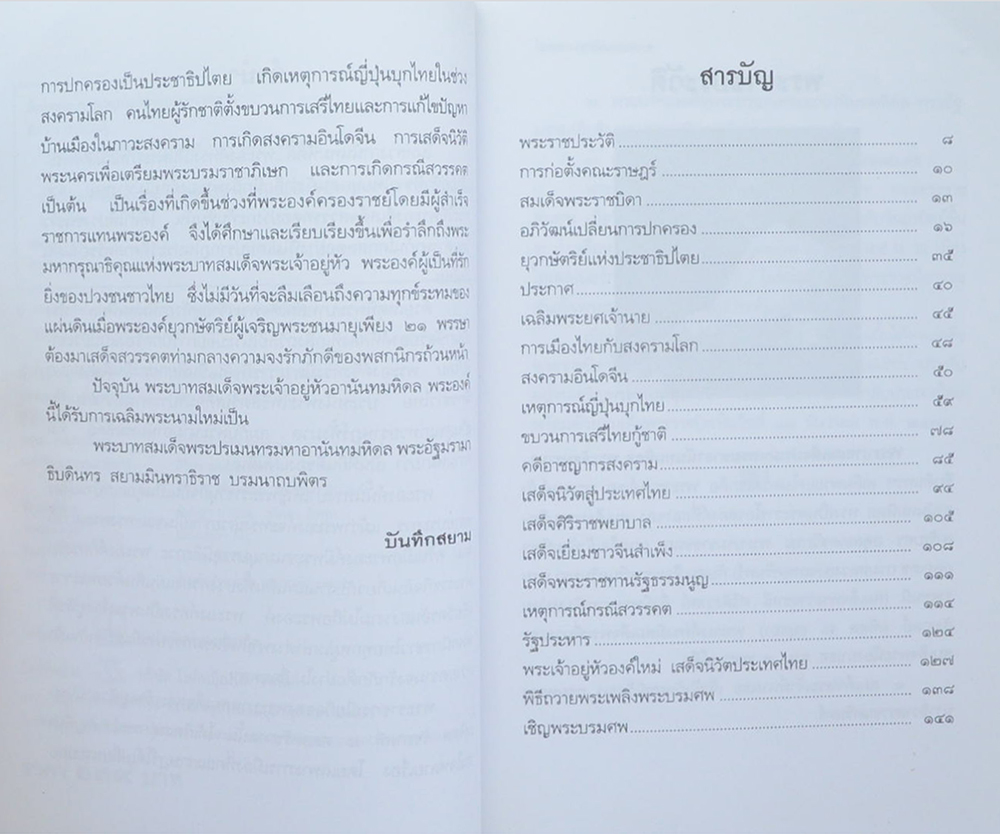 การปกครองเป็นประชาธิปไตย เกิดเหตุการณ์ญี่ปุ่นบุกไทยในช่วง
สงครามโลก คนไทยผู้รักชาติตั้งขบวนการเสรีไทยและการแก้ไขปัญหา
บ้านเมืองในภาวะสงคราม การเกิดสงครามอินโดจีน การเสด็จนิวัติ
พระนครเพื่อเตรียมพระบรมราชาภิเษก และการเกิดกรณีสวรรคต
เป็นต้น เป็นเรื่องที่เกิดขึ้นช่วงที่พระองค์ครองราชย์โดยมีผู้สำเร็จ
ราชการแทนพระองค์ จึงได้ศึกษาและเรียบเรียงขึ้นเพื่อรำลึกถึงพระ
มหากรุณาธิคุณแห่งพระบาทสมเด็จพระเจ้าอยู่หัว พระองค์ผู้เป็นที่รัก
ยิ่งของปวงชนชาวไทย ซึ่งไม่มีวันที่จะลืมเลือนถึงความทุกข์ระทมของ
แผ่นดินเมื่อพระองค์ยุวกษัตริย์ผู้เจริญพระชนมายุเพียง ๒๑ พรรษา
ต้องมาเสด็จสวรรคตท่ามกลางความจงรักภักดีของพสกนิกรถ้วนหน้า
ปัจจุบัน พระบาทสมเด็จพระเจ้าอยู่หัวอานันทมหิดล พระองค์
นี้ได้รับการเฉลิมพระนามใหม่เป็น
พระบาทสมเด็จพระปรเมนทรมหาอานันทมหิดล พระอัฐมรามา
ธิบดินทร สยามมินทราธิราช บรมนาถบพิตร
บันทึกสยาม
สารบัญ
พระราชประวัติ ........ ๘
การก่อตั้งคณะราษฎร์ ........ ๑๐
สมเด็จพระราชบิดา ........ ๑๓
อภิวัฒน์เปลี่ยนการปกครอง ........ ๑๖
ยุวกษัตริย์แห่งประชาธิปไตย ........ ๓๕
ประกาศ ........ ๔๐
เฉลิมพระยศเจ้านาย ........ ๔๕
การเมืองไทยกับสงครามโลก ........ ๔๘
สงครามอินโดจีน ........ ๕๐
เหตุการณ์ญี่ปุ่นบุกไทย ........ ๕๙
ขบวนการเสรีไทยกู้ชาติ ........ ๗๘
คดีอาชญากรสงคราม ........ ๘๕
เสด็จนิวัตสู่ประเทศไทย ........ ๙๔
เสด็จศิริราชพยาบาล ........ ๑๐๕
เสด็จเยี่ยมชาวจีนสำเพ็ง ........ ๑๐๘
เสด็จพระราชทานรัฐธรรมนูญ ........ ๑๑๑
เหตุการณ์กรณีสวรรคต ........ ๑๑๔
รัฐประหาร ........ ๑๒๔
พระเจ้าอยู่หัวองค์ใหม่ เสด็จนิวัตประเทศไทย ........ ๑๒๗
พิธีถวายพระเพลิงพระบรมศพ ........ ๑๓๘
เชิญพระบรมศพ ........ ๑๔๑